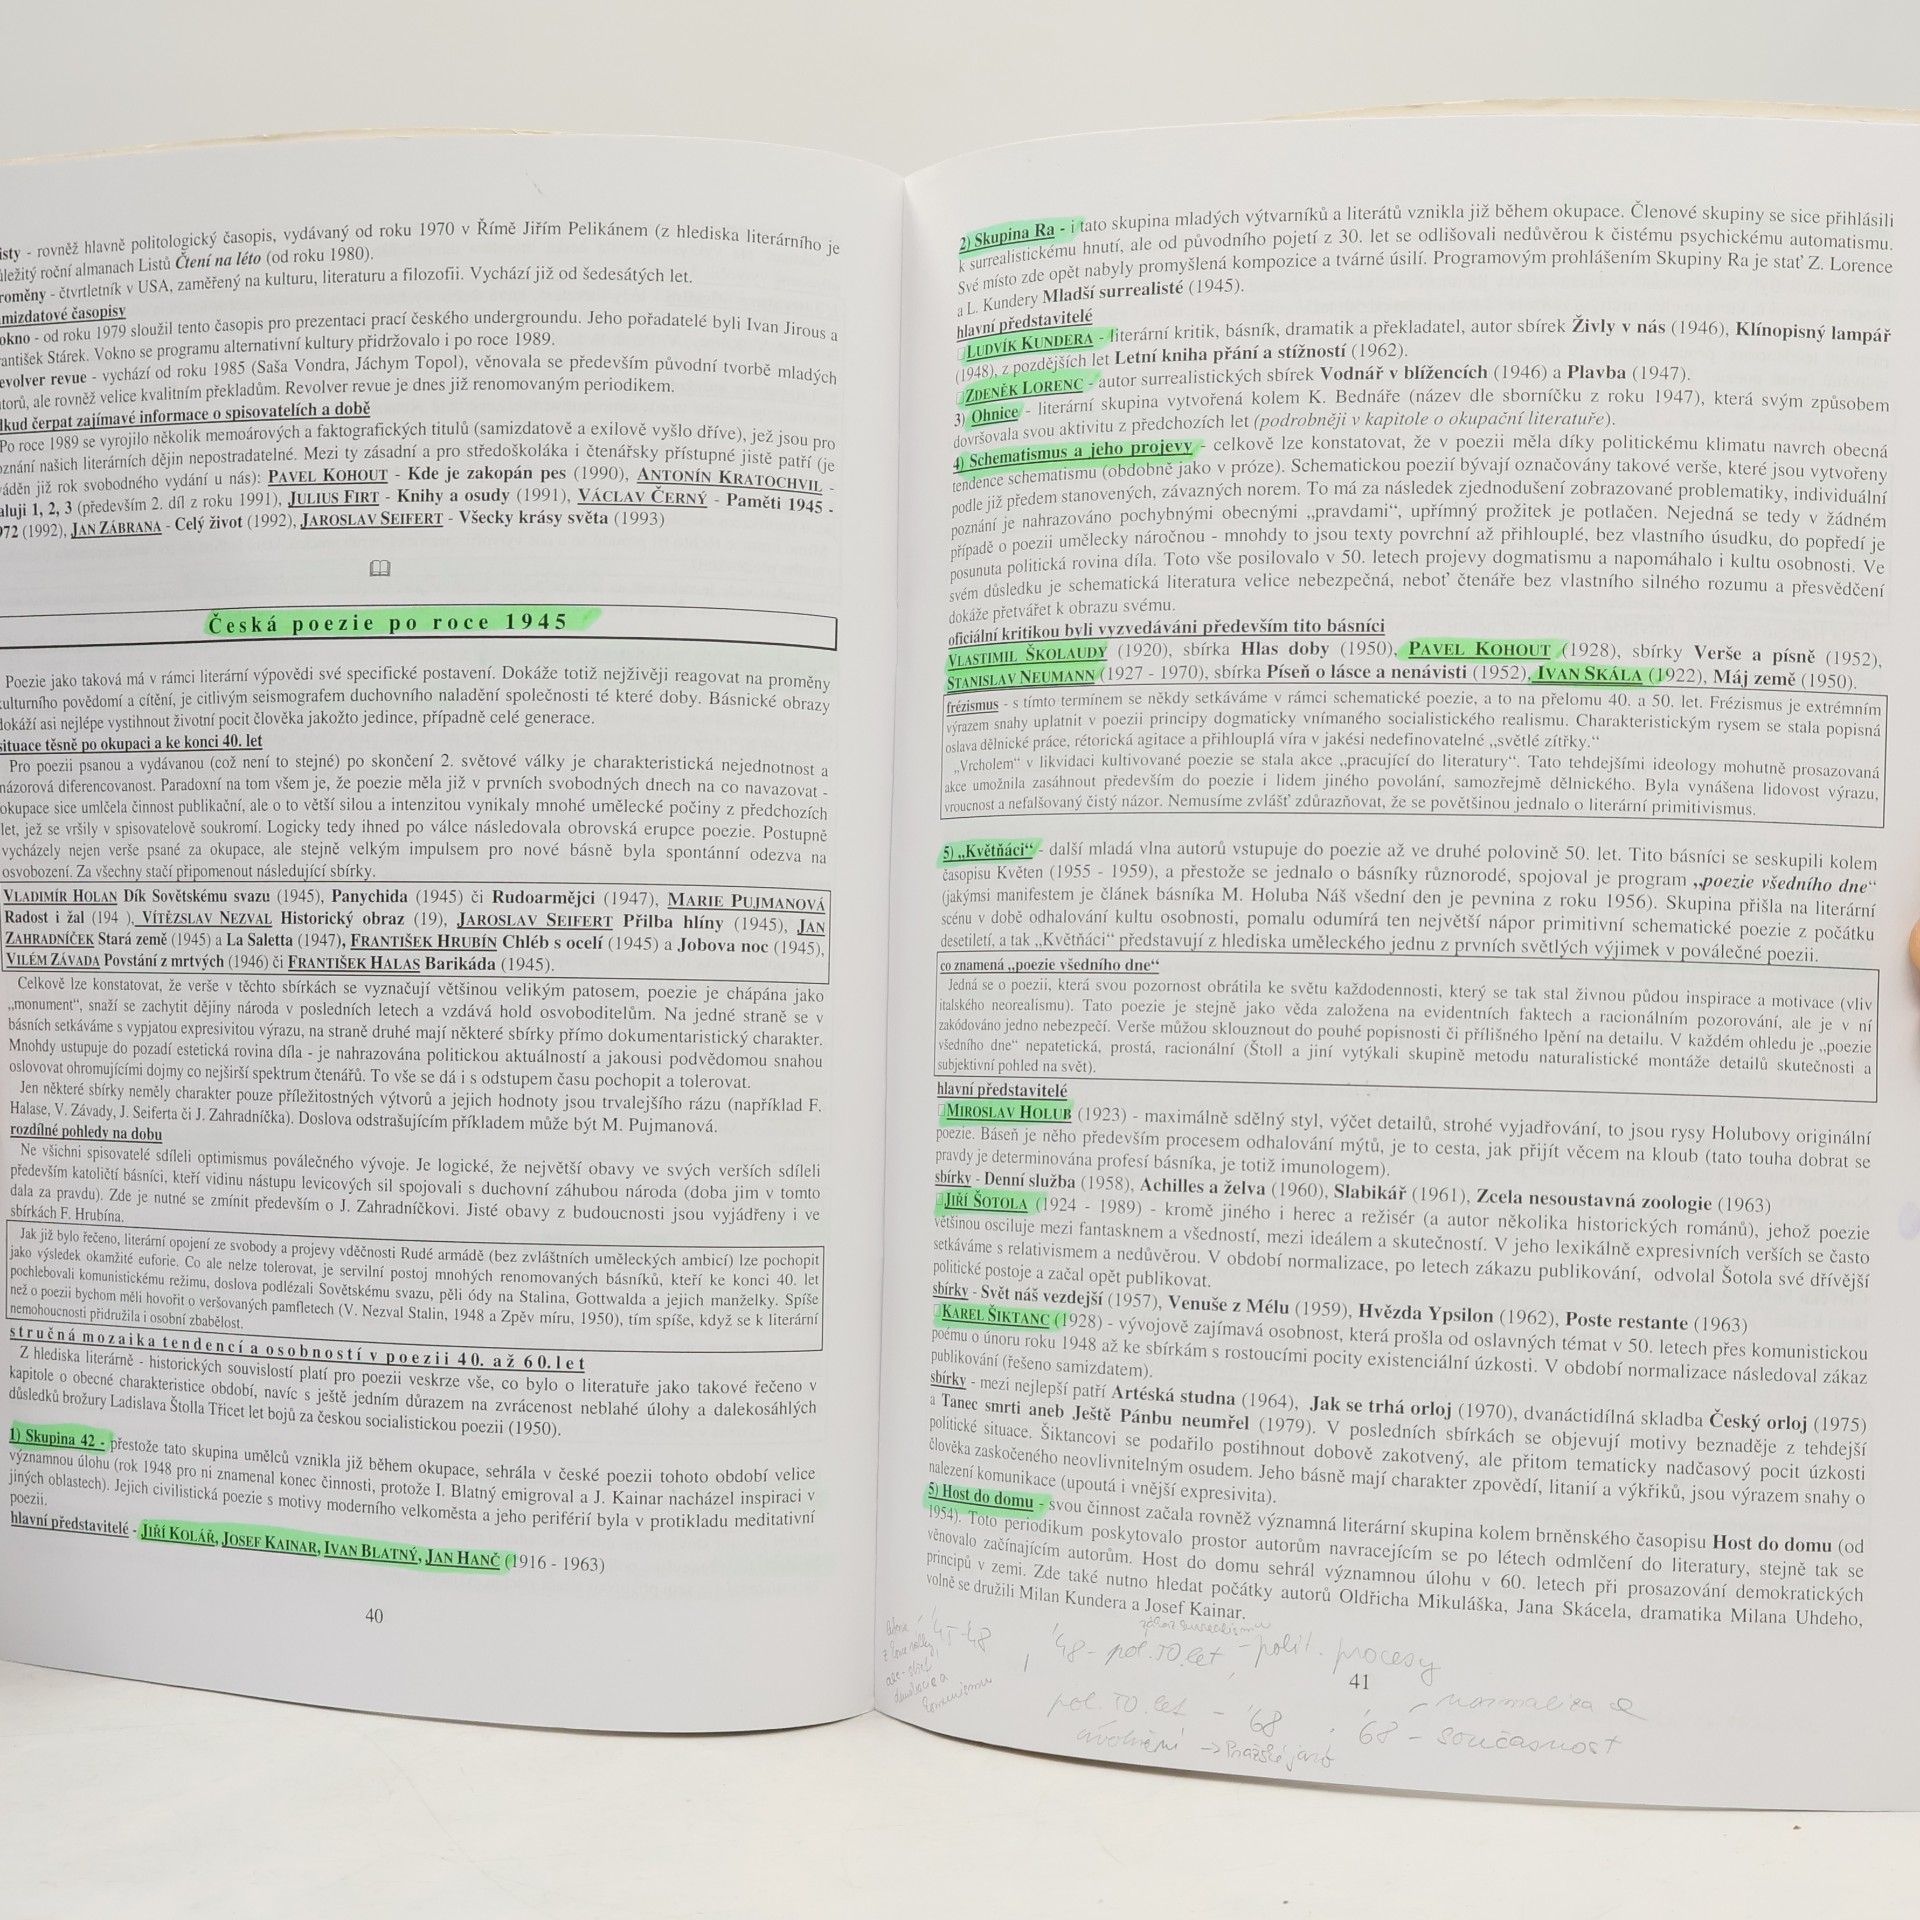 isty - rovněž hlavně politologický časopis, vydávaný od roku 1970 v Římě Jiřím Pelikánem (z hlediska literárního je
ůležitý roční almanach Listů Čtení na léto (od roku 1980).
roměny - čtvrtletník v USA, zaměřený na kulturu, literaturu a filozofii. Vychází již od šedesátých let.
mizdatové časopisy
okno - od roku 1979 sloužil tento časopis pro prezentaci prací českého undergroundu. Jeho pořadatelé byli Ivan Jirous a
rantišek Stárek. Vokno se programu alternativní kultury přidržovalo i po roce 1989.
evolver revue - vychází od roku 1985 (Saša Vondra, Jáchym Topol), věnovala se především původní tvorbě mladých
utorů, ale rovněž velice kvalitním překladům. Revolver revue je dnes již renomovaným periodikem.
lkud čerpat zajímavé informace o spisovatelích a době
Po roce 1989 se vyrojilo několik memoárových a faktografických titulů (samizdatově a exilově vyšlo dříve), jež jsou pro
oznání našich literárních dějin nepostradatelné. Mezi ty zásadní a pro středoškoláka i čtenářsky přístupné jistě patří (je
váděn již rok svobodného vydání u nás): PAVEL KOHOUT - Kde je zakopán pes (1990), ANTONÍN KRATOCHVIL -
aluji 1, 2, 3 (především 2. díl z roku 1991), JULIUS FIRT - Knihy a osudy (1991), VÁCLAV ČERNÝ - Paměti 1945 -
972 (1992), JAN ZÁBRANA - Celý život (1992), JAROSLAV SEIFERT - Všecky krásy světa (1993)
Česká poezie po roce 1945
Poezie jako taková má v rámci literární výpovědi své specifické postavení. Dokáže totiž nejživěji reagovat na proměny
kulturního povědomí a cítění, je citlivým seismografem duchovního naladění společnosti té které doby. Básnické obrazy
dokáží asi nejlépe vystihnout životní pocit člověka jakožto jedince, případně celé generace.
situace těsně po okupaci a ke konci 40. let
Pro poezii psanou a vydávanou (což není to stejné) po skončení 2. světové války je charakteristická nejednotnost a
názorová diferencovanost. Paradoxní na tom všem je, že poezie měla již v prvních svobodných dnech na co navazovat -
okupace sice umlčela činnost publikační, ale o to větší silou a intenzitou vynikaly mnohé umělecké počiny z předchozích
let, jež se vršily v spisovatelově soukromí. Logicky tedy ihned po válce následovala obrovská erupce poezie. Postupně
vycházely nejen verše psané za okupace, ale stejně velkým impulsem pro nové básně byla spontánní odezva na
osvobození. Za všechny stačí připomenout následující sbírky.
VLADIMÍR HOLAN Dík Sovětskému svazu (1945), Panychida (1945) či Rudoarmějci (1947), MARIE PUJMANOVÁ
Radost i žal (194 ), VÍTĚZSLAV NEZVAL Historický obraz (19), JAROSLAV SEIFERT Přilba hlíny (1945), JAN
ZAHRADNÍČEK Stará země (1945) a La Saletta (1947), FRANTIŠEK HRUBÍN Chléb s ocelí (1945) a Jobova noc (1945),
VILÉM ZÁVADA Povstání z mrtvých (1946) či FRANTIŠEK HALAS Barikáda (1945).
Celkově lze konstatovat, že verše v těchto sbírkách se vyznačují většinou velikým patosem, poezie je chápána jako
„monument“, snaží se zachytit dějiny národa v posledních letech a vzdává hold osvoboditelům. Na jedné straně se v
básních setkáváme s vypjatou expresivitou výrazu, na straně druhé mají některé sbírky přímo dokumentaristický charakter.
Mnohdy ustupuje do pozadí estetická rovina díla - je nahrazována politickou aktuálností a jakousi podvědomou snahou
oslovovat ohromujícími dojmy co nejširší spektrum čtenářů. To vše se dá i s odstupem času pochopit a tolerovat.
Jen některé sbírky neměly charakter pouze příležitostných výtvorů a jejich hodnoty jsou trvalejšího rázu (například F.
Halase, V. Závady, J. Seiferta či J. Zahradníčka). Doslova odstrašujícím příkladem může být M. Pujmanová.
rozdílné pohledy na dobu
Ne všichni spisovatelé sdíleli optimismus poválečného vývoje. Je logické, že největší obavy ve svých verších sdíleli
především katoličtí básníci, kteří vidinu nástupu levicových sil spojovali s duchovní záhubou národa (doba jim v tomto
dala za pravdu). Zde je nutné se zmínit především o J. Zahradníčkovi. Jisté obavy z budoucnosti jsou vyjádřeny i ve
sbírkách F. Hrubína.
Jak již bylo řečeno, literární opojení ze svobody a projevy vděčnosti Rudé armádě (bez zvláštních uměleckých ambicí) lze pochopit
jako výsledek okamžité euforie. Co ale nelze tolerovat, je servilní postoj mnohých renomovaných básníků, kteří ke konci 40. let
pochlebovali komunistickému režimu, doslova podlézali Sovětskému svazu, pěli ódy na Stalina, Gottwalda a jejich manželky. Spíše
než o poezii bychom měli hovořit o veršovaných pamfletech (V. Nezval Stalin, 1948 a Zpěv míru, 1950), tím spíše, když se k literární
nemohoucnosti přidružila i osobní zbabělost.
stručná mozaika tendencí a osobností v poezii 40. až 60. let
Z hlediska literárně - historických souvislostí platí pro poezii veskrze vše, co bylo o literatuře jako takové řečeno v
kapitole o obecné charakteristice období, navíc s ještě jedním důrazem na zvrácenost neblahé úlohy a dalekosáhlých
důsledků brožury Ladislava Štolla Třicet let bojů za českou socialistickou poezii (1950).
1) Skupina 42 - přestože tato skupina umělců vznikla již během okupace, sehrála v české poezii tohoto období velice
významnou úlohu (rok 1948 pro ni znamenal konec činnosti, protože I. Blatný emigroval a J. Kainar nacházel inspiraci v
jiných oblastech). Jejich civilistická poezie s motivy moderního velkoměsta a jeho periférií byla v protikladu meditativní
poezii.
hlavní představitelé - JIŘÍ KOLÁŘ, JOSEF KAINAR, IVAN BLATNÝ, JAN HANČ (1916 - 1963)
40
2) Skupina Ra - i tato skupina mladých výtvarníků a literátů vznikla již během okupace. Členové skupiny se sice přihlásili
k surrealistickému hnutí, ale od původního pojetí z 30. let se odlišovali nedůvěrou k čistému psychickému automatismu.
Své místo zde opět nabyly promyšlená kompozice a tvárné úsilí. Programovým prohlášením Skupiny Ra je stať Z. Lorence
a L. Kundery Mladší surrealisté (1945).
hlavní představitelé
LUDVÍK KUNDERA - literární kritik, básník, dramatik a překladatel, autor sbírek Živly v nás (1946), Klínopisný lampář
(1948), z pozdějších let Letní kniha přání a stížností (1962).
ZDENĚK LORENC - autor surrealistických sbírek Vodnář v blížencích (1946) a Plavba (1947).
3) Ohnice - literární skupina vytvořená kolem K. Bednáře (název dle sborníčku z roku 1947), která svým způsobem
dovršovala svou aktivitu z předchozích let (podrobněji v kapitole o okupační literatuře).
4) Schematismus a jeho projevy - celkově lze konstatovat, že v poezii měla díky politickému klimatu navrch obecná
tendence schematismu (obdobně jako v próze). Schematickou poezií bývají označovány takové verše, které jsou vytvořeny
podle již předem stanovených, závazných norem. To má za následek zjednodušení zobrazované problematiky, individuální
poznání je nahrazováno pochybnými obecnými „pravdami“, upřímný prožitek je potlačen. Nejedná se tedy v žádném
případě o poezii umělecky náročnou - mnohdy to jsou texty povrchní až přihlouplé, bez vlastního úsudku, do popředí je
posunuta politická rovina díla. Toto vše posilovalo v 50. letech projevy dogmatismu a napomáhalo i kultu osobnosti. Ve
svém důsledku je schematická literatura velice nebezpečná, neboť čtenáře bez vlastního silného rozumu a přesvědčení
dokáže přetvářet k obrazu svému.
oficiální kritikou byli vyzvedáváni především tito básníci
VLASTIMIL ŠKOLAUDY (1920), sbírka Hlas doby (1950), PAVEL KOHOUT (1928), sbírky Verše a písně (1952),
STANISLAV NEUMANN (1927 - 1970), sbírka Píseň o lásce a nenávisti (1952), IVAN SKÁLA (1922), Máj země (1950).
frézismus - s tímto termínem se někdy setkáváme v rámci schematické poezie, a to na přelomu 40. a 50. let. Frézismus je extrémním
výrazem snahy uplatnit v poezii principy dogmaticky vnímaného socialistického realismu. Charakteristickým rysem se stala popisná
oslava dělnické práce, rétorická agitace a přihlouplá víra v jakési nedefinovatelné „světlé zítřky.“
„Vrcholem“ v likvidaci kultivované poezie se stala akce „pracující do literatury“. Tato tehdejšími ideology mohutně prosazovaná
akce umožnila zasáhnout především do poezie i lidem jiného povolání, samozřejmě dělnického. Byla vynášena lidovost výrazu,
vroucnost a nefalšovaný čistý názor. Nemusíme zvlášť zdůrazňovat, že se povětšinou jednalo o literární primitivismus.
5) „Květňáci“ - další mladá vlna autorů vstupuje do poezie až ve druhé polovině 50. let. Tito básníci se seskupili kolem
časopisu Květen (1955 - 1959), a přestože se jednalo o básníky různorodé, spojoval je program „poezie všedního dne“
(jakýmsi manifestem je článek básníka M. Holuba Náš všední den je pevnina z roku 1956). Skupina přišla na literární
scénu v době odhalování kultu osobnosti, pomalu odumírá ten největší nápor primitivní schematické poezie z počátku
desetiletí, a tak „Květňáci“ představují z hlediska uměleckého jednu z prvních světlých výjimek v poválečné poezii.
co znamená „poezie všedního dne“
Jedná se o poezii, která svou pozornost obrátila ke světu každodennosti, který se tak stal živnou půdou inspirace a motivace (vliv
italského neorealismu). Tato poezie je stejně jako věda založena na evidentních faktech a racionálním pozorování, ale je v ní
zakódováno jedno nebezpečí. Verše můžou sklouznout do pouhé popisnosti či přílišného lpění na detailu. V každém ohledu je „poezie
všedního dne“ nepatetická, prostá, racionální (Štoll a jiní vytýkali skupině metodu naturalistické montáže detailů skutečnosti a
subjektivní pohled na svět).
hlavní představitelé
MIROSLAV HOLUB (1923) - maximálně sdělný styl, výčet detailů, strohé vyjadřování, to jsou rysy Holubovy originální
poezie. Báseň je něho především procesem odhalování mýtů, je to cesta, jak přijít věcem na kloub (tato touha dobrat se
pravdy je determinována profesí básníka, je totiž imunologem).
sbírky - Denní služba (1958), Achilles a želva (1960), Slabikář (1961), Zcela nesoustavná zoologie (1963)
JIŘÍ ŠOTOLA (1924 - 1989) - kromě jiného i herec a režisér (a autor několika historických románů), jehož poezie
většinou osciluje mezi fantasknem a všedností, mezi ideálem a skutečností. V jeho lexikálně expresivních verších se často
setkáváme s relativismem a nedůvěrou. V období normalizace, po letech zákazu publikování, odvolal Šotola své dřívější
politické postoje a začal opět publikovat.
sbírky - Svět náš vezdejší (1957), Venuše z Mélu (1959), Hvězda Ypsilon (1962), Poste restante (1963)
KAREL ŠIKTANC (1928) - vývojově zajímavá osobnost, která prošla od oslavných témat v 50. letech přes komunistickou
poému o únoru roku 1948 až ke sbírkám s rostoucími pocity existenciální úzkosti. V období normalizace následoval zákaz
publikování (řešeno samizdatem).
sbírky - mezi nejlepší patří Artéská studna (1964), Jak se trhá orloj (1970), dvanáctidílná skladba Český orloj (1975)
a Tanec smrti aneb Ještě Pánbu neumřel (1979). V posledních sbírkách se objevují motivy beznaděje z tehdejší
politické situace. Šiktancovi se podařilo postihnout dobově zakotvený, ale přitom tematicky nadčasový pocit úzkosti
člověka zaskočeného neovlivnitelným osudem. Jeho básně mají charakter zpovědí, litanií a výkřiků, jsou výrazem snahy o
nalezení komunikace (upoutá i vnější expresivita).
5) Host do domu - svou činnost začala rovněž významná literární skupina kolem brněnského časopisu Host do domu (od
1954). Toto periodikum poskytovalo prostor autorům navracejícím se po létech odmlčení do literatury, stejně tak se
věnovalo začínajícím autorům. Host do domu sehrál významnou úlohu v 60. letech při prosazování demokratických
principů v zemi. Zde také nutno hledat počátky autorů Oldřicha Mikuláška, Jana Skácela, dramatika Milana Uhdeho,
volně se družili Milan Kundera a Josef Kainar.
'45-48
zákaz surrealismu
'48 - pol. 50. let - polit. procesy
41
pol. 50. let - '68
uvolnění → Pražské jaro
normalizace
'68 - současnost